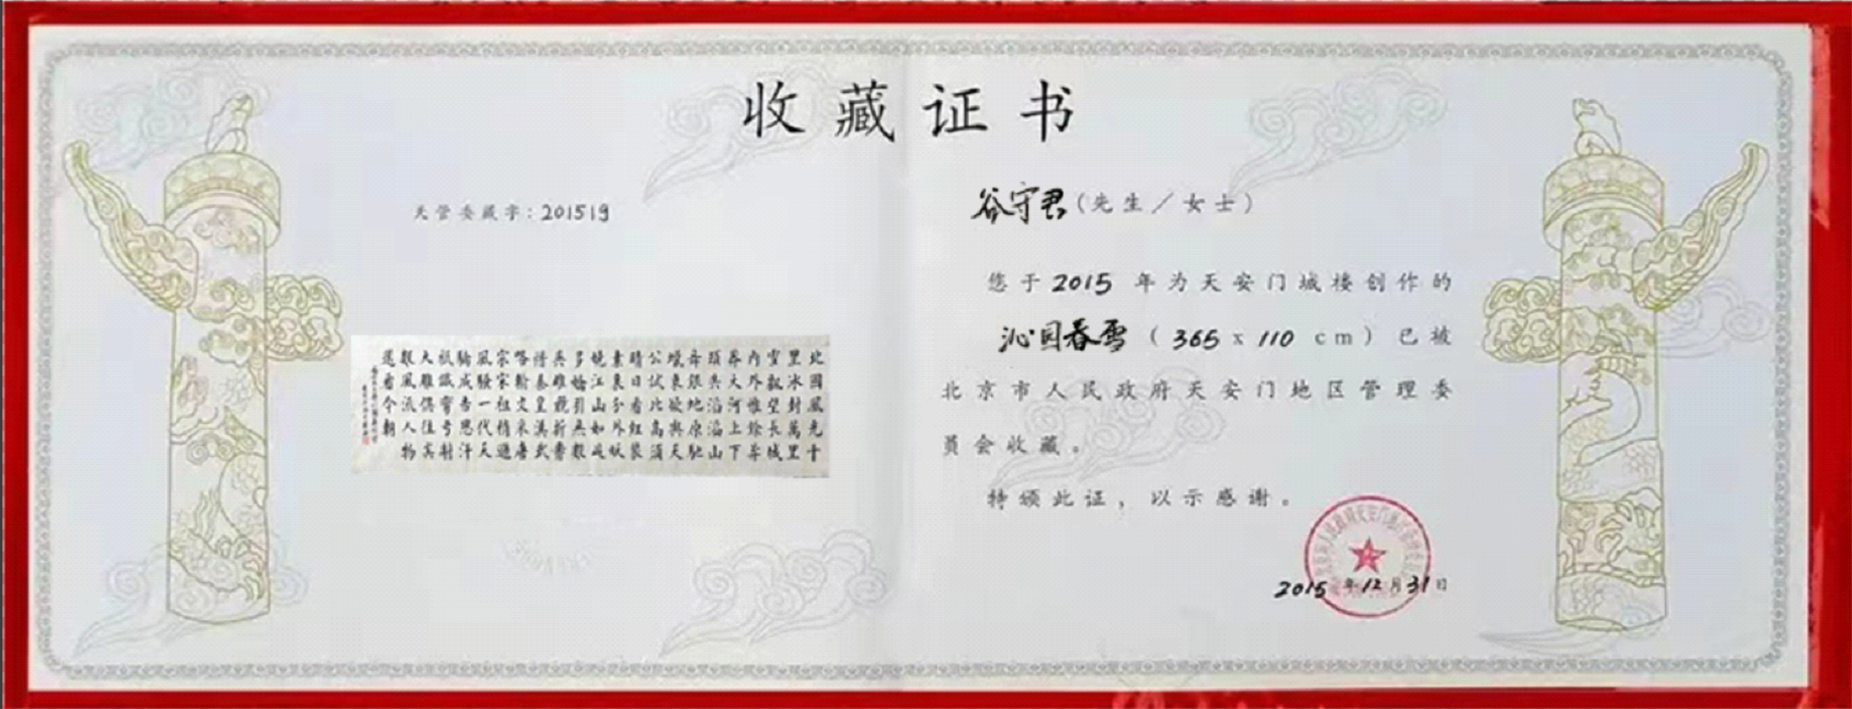 收藏证书
天管委藏字：201519
北國風光千
里冰封萬里
雪飄望長城
内外惟餘莽
莽大河上下
頓失滔滔山
舞銀蛇原馳
蠟象欲與天
公試比高須
晴日看紅裝
素裹分外妖
嬈江山如此
多嬌引無數
英雄競折腰
惜秦皇漢武
略輸文采唐
宗宋祖稍遜
風騷一代天
驕成吉思汗
祇識彎弓射
大雕俱往矣
數風流人物
還看今朝
谷守君（先生／女士）
您于2015年为天安门城楼创作的
沁园春雪（365x110cm）已被
北京市人民政府天安门地区管理委
员会收藏。
特颁此证，以示感谢。
2015年12月31日